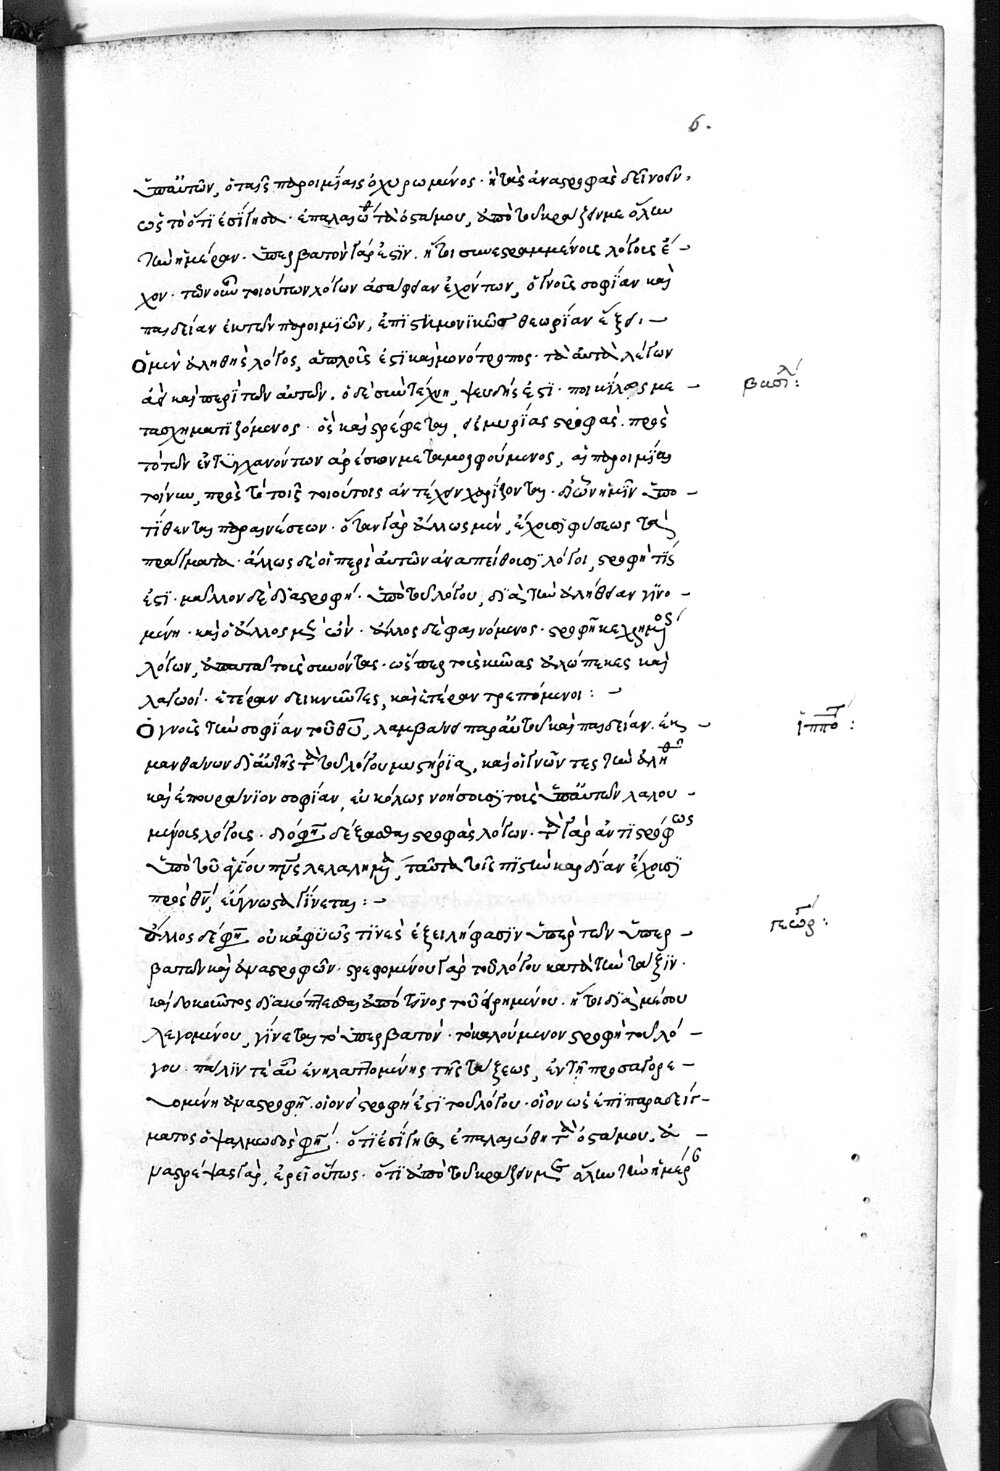 6.
ὑπ' αὐτῶν, ὁ ταῖς παροιμίαις ὀχυρωμένος. ἢ τὰς ἀναστροφὰς δεινοῦν.
ὡς τὸ ὅτι ἐσίγησα. ἐπαλαιώθη τὰ ὀστᾶ μου, ἀπὸ τοῦ κράζειν με ὅλην
τὴν ἡμέραν. ὑπερβατὸν γάρ ἐστιν. ἤτοι συνεστραμμένοις λόγοις ἐ
χον. τῶν οὖν τοιούτων λόγων ἀσάφειαν ἐχόντων, ὁ γνοὺς σοφίαν καὶ
παιδείαν ἐκ τῶν παροιμιῶν, ἐπιστημονικῶς θεωρίαν ἕξει.
Ὁ μὲν ἀληθὴς λόγος, ἁπλοῦς ἐστι καὶ μονότροπος. τὰ αὐτὰ λέγων
βασιλ:
ἀεὶ καὶ περὶ τῶν αὐτῶν. ὁ δὲ σὺν τέχνη, ψευδής ἐστι. ποικίλως με
τασχηματιζόμενος. ὃς καὶ στρέφεται, μυρίας στροφάς. πρὸς
τὸ τῶν ἐντυγχανόντων ἀρέσκον μεταμορφούμενος, αἱ παροιμίαι
τοίνυν, πρὸς τὸ τοῖς τοιούτοις ἀντέχειν χαρίζονται. δι' ὧν ἡμῖν ὑπο
τίθενται παραινέσεων. ὅταν γὰρ ἄλλως μὲν, ἔχωσι φύσεως τὰ
πράγματα. ἄλλως δὲ οἱ περὶ αὐτῶν ἀναπείθουσι λόγοι, στροφή τίς
ἐστι. μᾶλλον δὲ διαστροφή. ὑπὸ τοῦ λόγου, διὰ τὴν ἀλήθειαν γινο
μένη. καὶ ὁ ἄλλος μὲν ὤν. ἄλλος δὲ φαινόμενος. στροφῇ κεχρημένος
λόγων, ἀπατᾷ τοὺς συνόντας. ὥσπερ τοὺς κύνας ἀλώπεκες καὶ
λαγωοί. ἑτέραν δεικνύντες, καὶ ἑτέραν τρεπόμενοι:
Ὁ γνοὺς τὴν σοφίαν τοῦ θεοῦ, λαμβάνει παρ' αὐτοῦ καὶ παιδείαν. ἐκ
ἱππο:
μανθάνων δι' αὐτῆς τὰ τοῦ λόγου μυστήρια, καὶ οἱ γνῶντες τὴν ἀληθῆ
καὶ ἐπουράνιον σοφίαν, εὐκόλως νοήσουσι τοὺς ὑπ' αὐτῶν λαλου
μένοις λόγοις. διό φησι δέξασθαι στροφὰς λόγων. τὰ γὰρ ἀντιστρόφως
ὑπὸ τοῦ ἁγίου πνς λελαλημένα, ταῦτα τοῖς πιστὴν καρδίαν ἔχουσι
πρὸς θν, εὔγνωστα γίνεται:
Ἄλλος δέ φησι οὐκ ἀφυῶς τινὲς ἐξειλήφασιν ὑπὲρ τῶν ὑπερ
γεώρ:
βατῶν καὶ ἀναστροφῶν. στρεφομένου γὰρ τοῦ λόγου κατὰ τὴν τάξιν.
καὶ δοκοῦντος διακόπτεσθαι ἀπό τινος τοῦ εἰρημένου. ἤτοι διὰ μέσου
λεγομένου, γίνεται τὸ ὑπερβατόν. τὸ καλούμενον στροφὴ τοῦ λό
γου. πάλιν τε αὖ ἐνηλλαγμένης τῆς τάξεως, ἐν τῇ προσαγορε
υομένη ἀναστροφῇ. οἱονεὶ στροφή ἐστι τοῦ λόγου. οἷον ὡς ἐπὶ παραδείγ
ματος ὁ ψαλμωδός φησι. ὅτι ἐσίγησα ἐπαλαιώθη τὰ ὀστᾶ μου. ἀ
ναστρέψας γὰρ, ἐρεῖ οὕτως. ὅτι ἀπὸ τοῦ κράζειν με ὅλην τὴν ἡμέραν